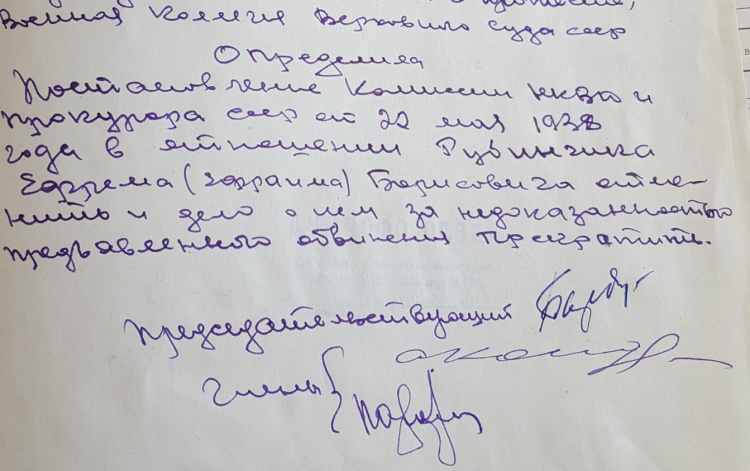 Военная Колегия Верховного суда ссср
Определила
Постановление Комиссии нквд и
прокурора ссср от 22 мая 1938
года в отношении Рубинчика
Ефрема (Эфраима) Борисовича отме-
нить и дело о нем за недоказанностью
предъявленного обвинения прекратить.
Председательствующий
члены